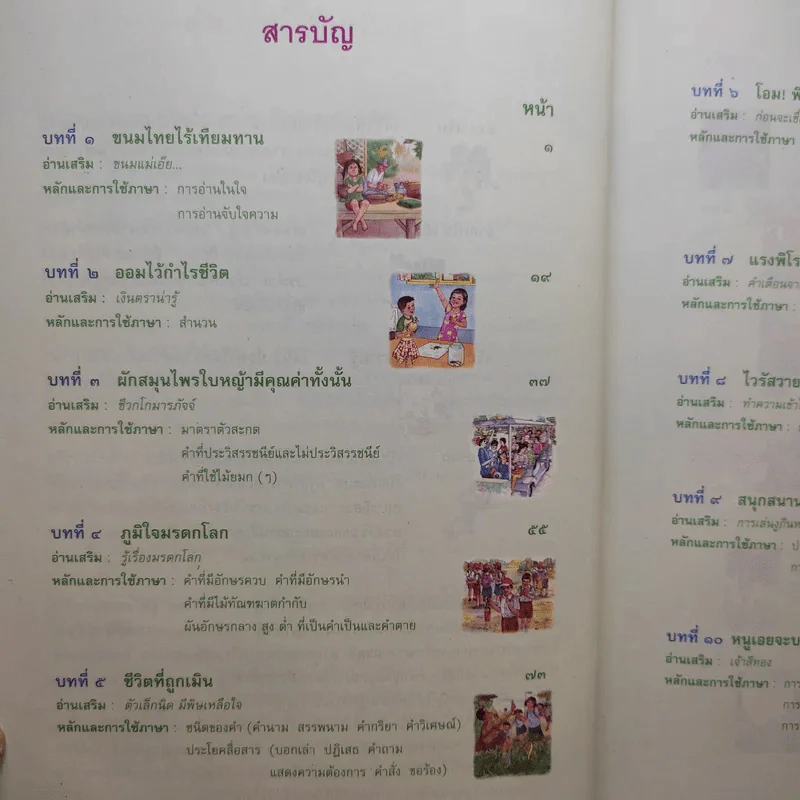 สารบัญ
หน้า
บทที่ ๑ ขนมไทยไร้เทียมทาน ๑
อ่านเสริม : ขนมแม่เอ๊ย...
หลักและการใช้ภาษา : การอ่านในใจ
การอ่านจับใจความ
บทที่ ๒ ออมไว้กำไรชีวิต ๑๙
อ่านเสริม : เงินตราน่ารู้
หลักและการใช้ภาษา : สำนวน
บทที่ ๓ ผักสมุนไพรใบหญ้ามีคุณค่าทั้งนั้น ๓๗
อ่านเสริม : ชีวกโกมารภัจจ์
หลักและการใช้ภาษา : มาตราตัวสะกด
คำที่ประวิสรรชนีย์และไม่ประวิสรรชนีย์
คำที่ใช้ไม้ยมก (ๆ)
บทที่ ๔ ภูมิใจมรดกโลก ๕๕
อ่านเสริม : รู้เรื่องมรดกโลก
หลักและการใช้ภาษา : คำที่มีอักษรควบ คำที่มีอักษรนำ
คำที่มีไม้ทัณฑฆาตกำกับ
ผันอักษรกลาง สูง ต่ำ ที่เป็นคำเป็นและคำตาย
บทที่ ๕ ชีวิตที่ถูกเมิน ๗๓
อ่านเสริม : ตัวเล็กนิด มีพิษเหลือใจ
หลักและการใช้ภาษา : ชนิดของคำ (คำนาม สรรพนาม คำกริยา คำวิเศษณ์)
ประโยคสื่อสาร (บอกเล่า ปฏิเสธ คำถาม
แสดงความต้องการ คำสั่ง ขอร้อง)
บทที่ ๖ โอม!
อ่านเสริม :
หลักและการใช้ภาษา
บทที่ ๗
อ่านเสริม :
หลักและการใช้ภาษา :
บทที่ ๘
อ่านเสริม :
หลักและการใช้ภาษา :
บทที่ ๙
อ่านเสริม :
หลักและการใช้ภาษา :
บทที่ ๑๐
อ่านเสริม : เจ้าสีทอง
หลักและการใช้ภาษา :